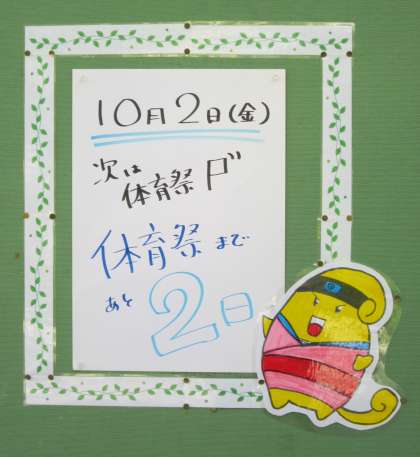 10月2日(金)
次は
体育祭 だ
体育祭まで
あと 2日